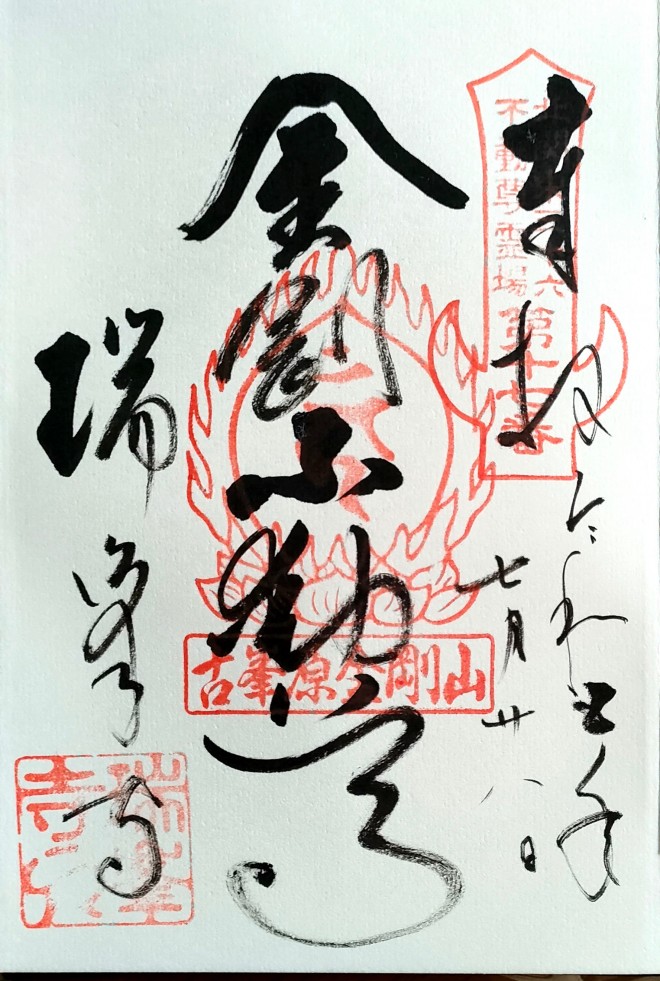 奉拝
北関東三十六
不動尊霊場
第十七番
令和 年
七月廿八日
金剛不動尊
古峯原金剛山
瑞峯寺